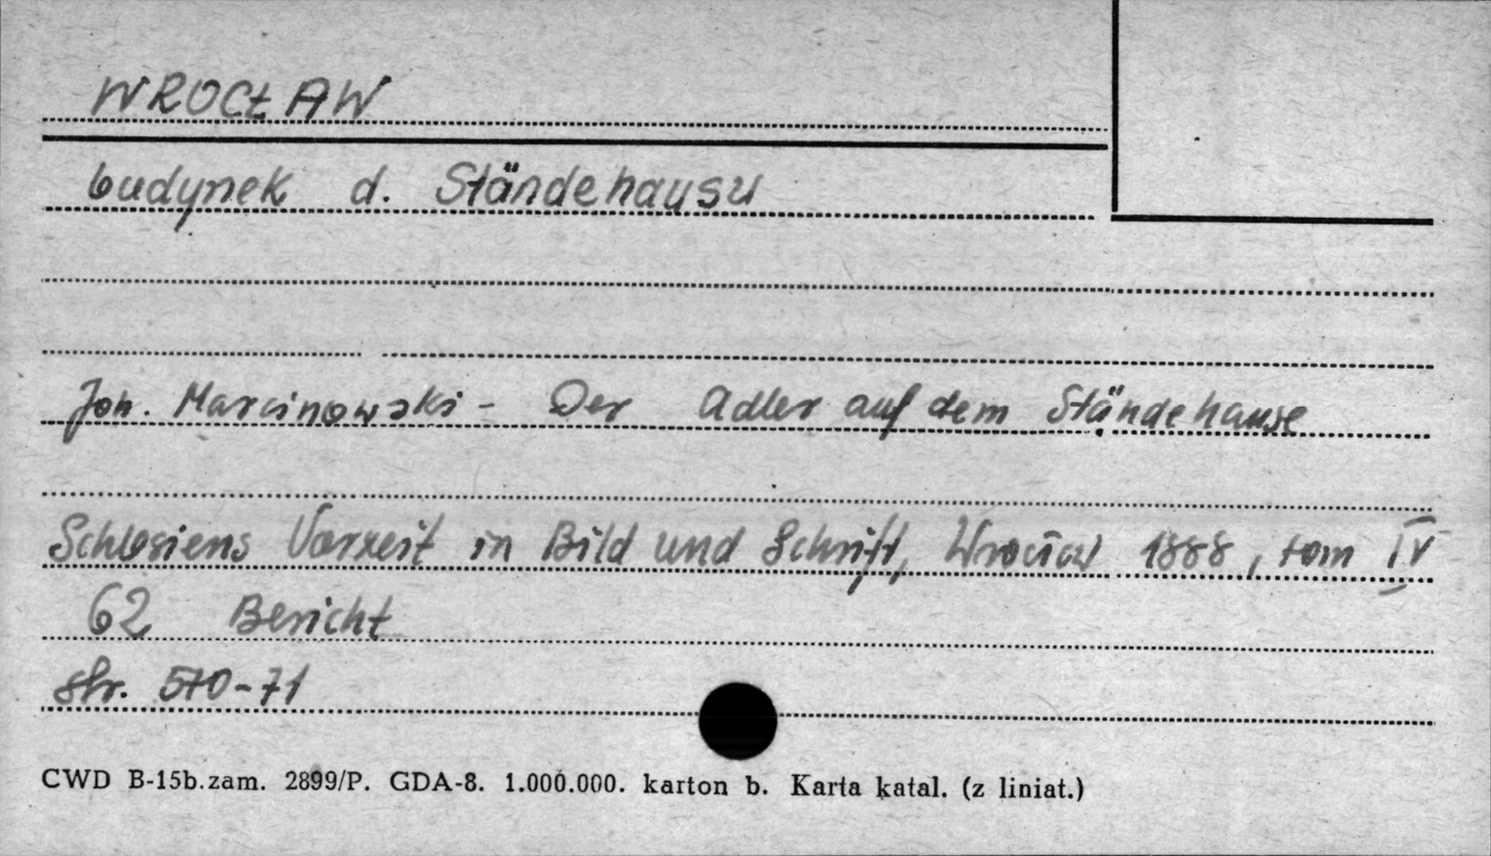 WROCŁAW
budynek d. Ständehausu
Joh. Marcinowski - Der Adler auf dem Ständehause
Schlesiens Vorzeit in Bild und Schrift, Wrocław 1888, tom IV
62 Bericht
str. 570-71
CWD B-15b.zam. 2899/P. GDA-8. 1.000.000. karton b. Karta katal. (z liniat.)